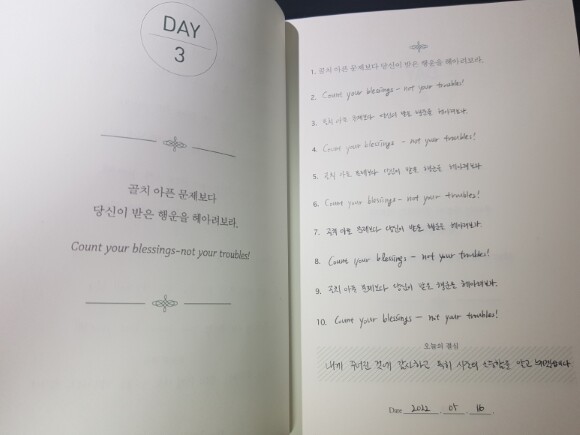 DAY
3
골치 아픈 문제보다
당신이 받은 행운을 헤아려보라.
Count your blessings-not your troubles!
1. 골치 아픈 문제보다 당신이 받은 행운을 헤아려보라.
2. Count your blessings - not your troubles!
3. 골치 아픈 문제보다 당신이 받은 행운을 헤아려보라.
4. Count your blessings - not your troubles!
5. 골치 아픈 문제보다 당신이 받은 행운을 헤아려보라.
6. Count your blessings - not your troubles!
7. 골치 아픈 문제보다 당신이 받은 행운을 헤아려보라.
8. Count your blessings - not your troubles!
9. 골치 아픈 문제보다 당신이 받은 행운을 헤아려보라.
10. Count your blessings - not your troubles!
오늘의 결심
내게 주어진 것에 감사하고 특히 시간의 소중함을 알고
Date 2022 . 05 . 16 .